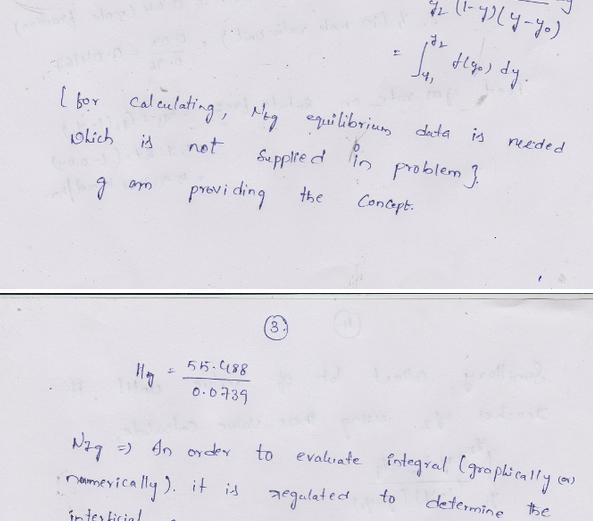 y₂ (1-y)(y-y₀)
= ∫ y₁ y₂ f(y₀) dy.
[for calculating, Ntg equilibrium data is needed
which is not supplied in problem}.
I am providing the concept.
3.
Htg = 55.488
0.0739
Ntg => In order to evaluate integral (graphically (or)
numerically). it is regulated to determine the
interficial